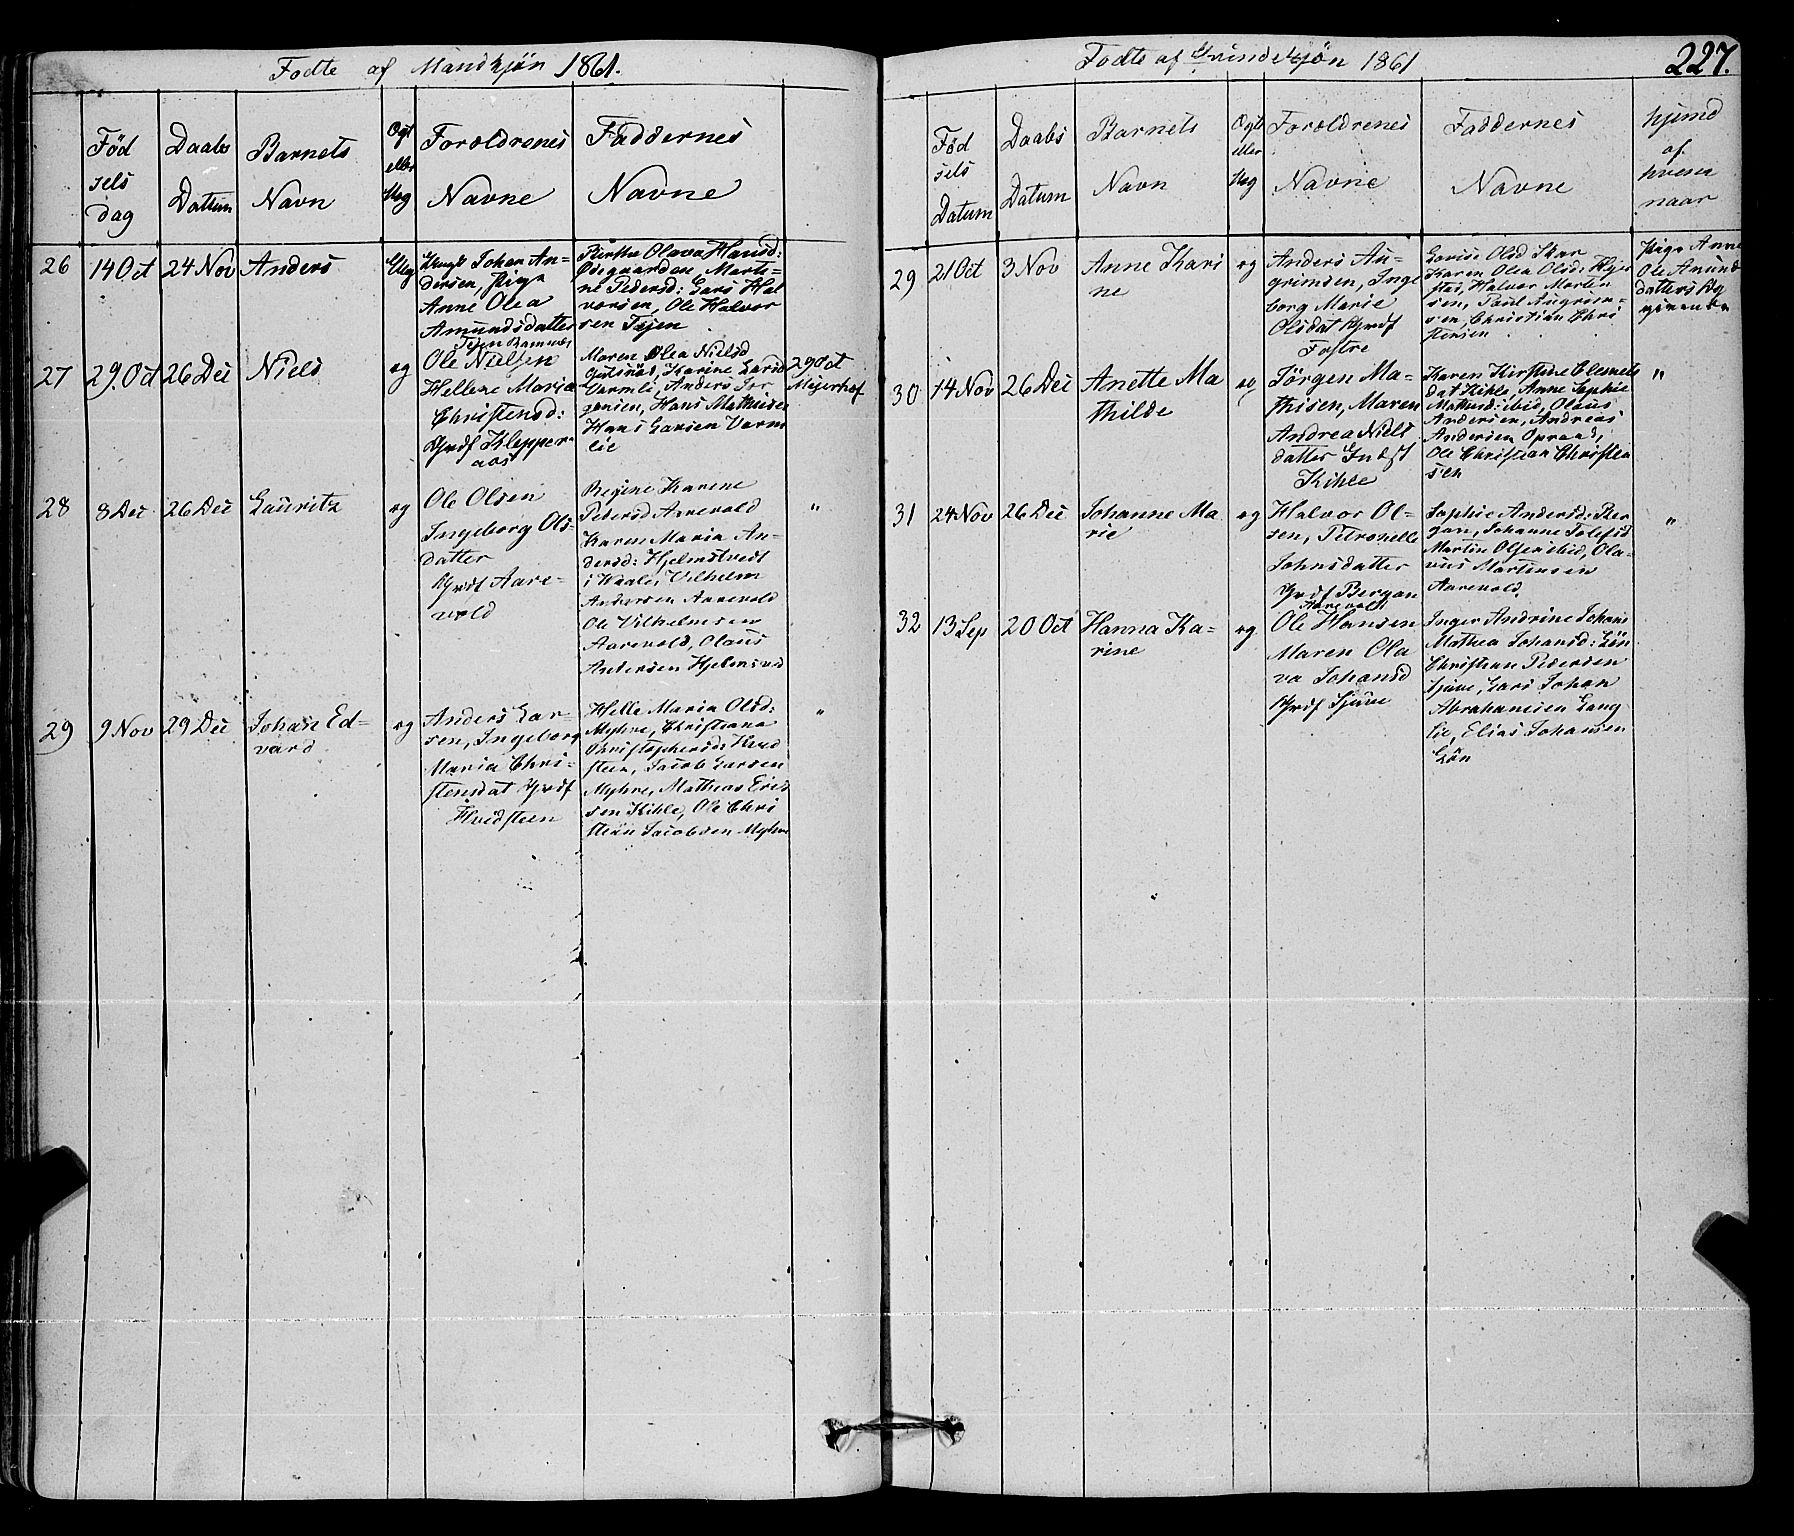 Fodte af Mandkjön 1861.
Föd
sels
dag
Daabs
Dattum
Barnets
Navn
Ægt
eller
Uæg
Forældrenes
Navne
Faddernes
Navne
26
14 Oct
24 Nov
Anders
Uæg
Ungk Johan An-
dersen, Pige
Anne Olea
Amundsdatter
Tejen Bamnes
Birthe Olava Hansd:
Ödegaarden, Marte-
ne Pedersd: Lars Hal
vorsen, Ole Halvor
sen Tejen
27
29 Oct
26 Dec
Niels
æg
Ole Nielsen
Hellene Maria
Christensd:
Grdf Klepper-
aas
Maren Olea Nielsd
Karine Larsd
Varmli, Anders Jör
gensen, Hans Mathisen
Hans Larsen Varm
lie
29 Oct
Mejerhof
28
8 Dec
26 Dec
Lauritz
æg
Ole Olsen
Ingeborg Ols-
datter
Grdf Aare-
vold
Regine Karene
Petersd Aarevold
Karen Maria An-
dersd: Hjelmstvedt
i Waale, Vilhelm
Andersen Aarevold
Ole Vilhelmsen
Aarevold, Olaus
Andersen Hjelmsvd
"
29
9 Nov
29 Dec
Johan Ed-
vard
æg
Anders Lar-
sen, Ingeborg
Maria Chri-
stensdat Grdf
Hvidsteen
Helle Maria Olsd:
Myhre, Christiana
Christophersd: Hvid
steen, Jacob Larsen
Myhre, Mathias Erik
sen Kihle, Ole Chri
stian Jacobsen Myhre
"
Fodte af Qvindekjön 1861
227.
Föd
sels
Datum
Daabs
Datum
Barnets
Navn
Ægte
eller
Uæg
Forældrenes
Navne
Faddernes
Navne
hjemd
af
hvem
naar
29
21 Oct
3 Nov
Anne Kari
ne
æg
Anders An-
grimsen, Inge
borg Marie
Olsdat Grdf
Fostre
Larise Olsd Skar
Karen Olea Olsd: Hjer
sted, Halvor Morten
sen, Paul Angrim-
sen, Christian Chri
stensen
Pige Anne
Ole Amund
datters
30
14 Nov
26 Dec
Anette Ma
thilde
æg
Jörgen Ma-
thisen, Maren
Andrea Niels
datter Indst
Kihle
Karen Kirstine Clemets
dat Kihle, Anne Sophie
Mathisd: ibid, Olaus
Andersen, Andreas
Andersen Opraad,
Ole Christian Christen
sen
"
31
24 Nov
26 Dec
Johanne Ma
rie
æg
Halvor Ol-
sen, Petronelle
Johnsdatter
Grdf Bergan
Aarevold
Sophie Andersd: Ber
gan, Johanne Tolefsd
Martin Olsen ibid, Ola-
vus Martinsen
Aarevold.
"
32
13 Sep
20 Oct
Hanna Ka-
rine
æg
Ole Hansen
Maren Ola
va Johansd
Grdf Sjuve
Inger Andrine Johans
Mathea Johansd: Lön
Christian Pedersen
Sjuve, Lars Johan
Abrahamsen Lang
lie, Elias Johansen
Lön